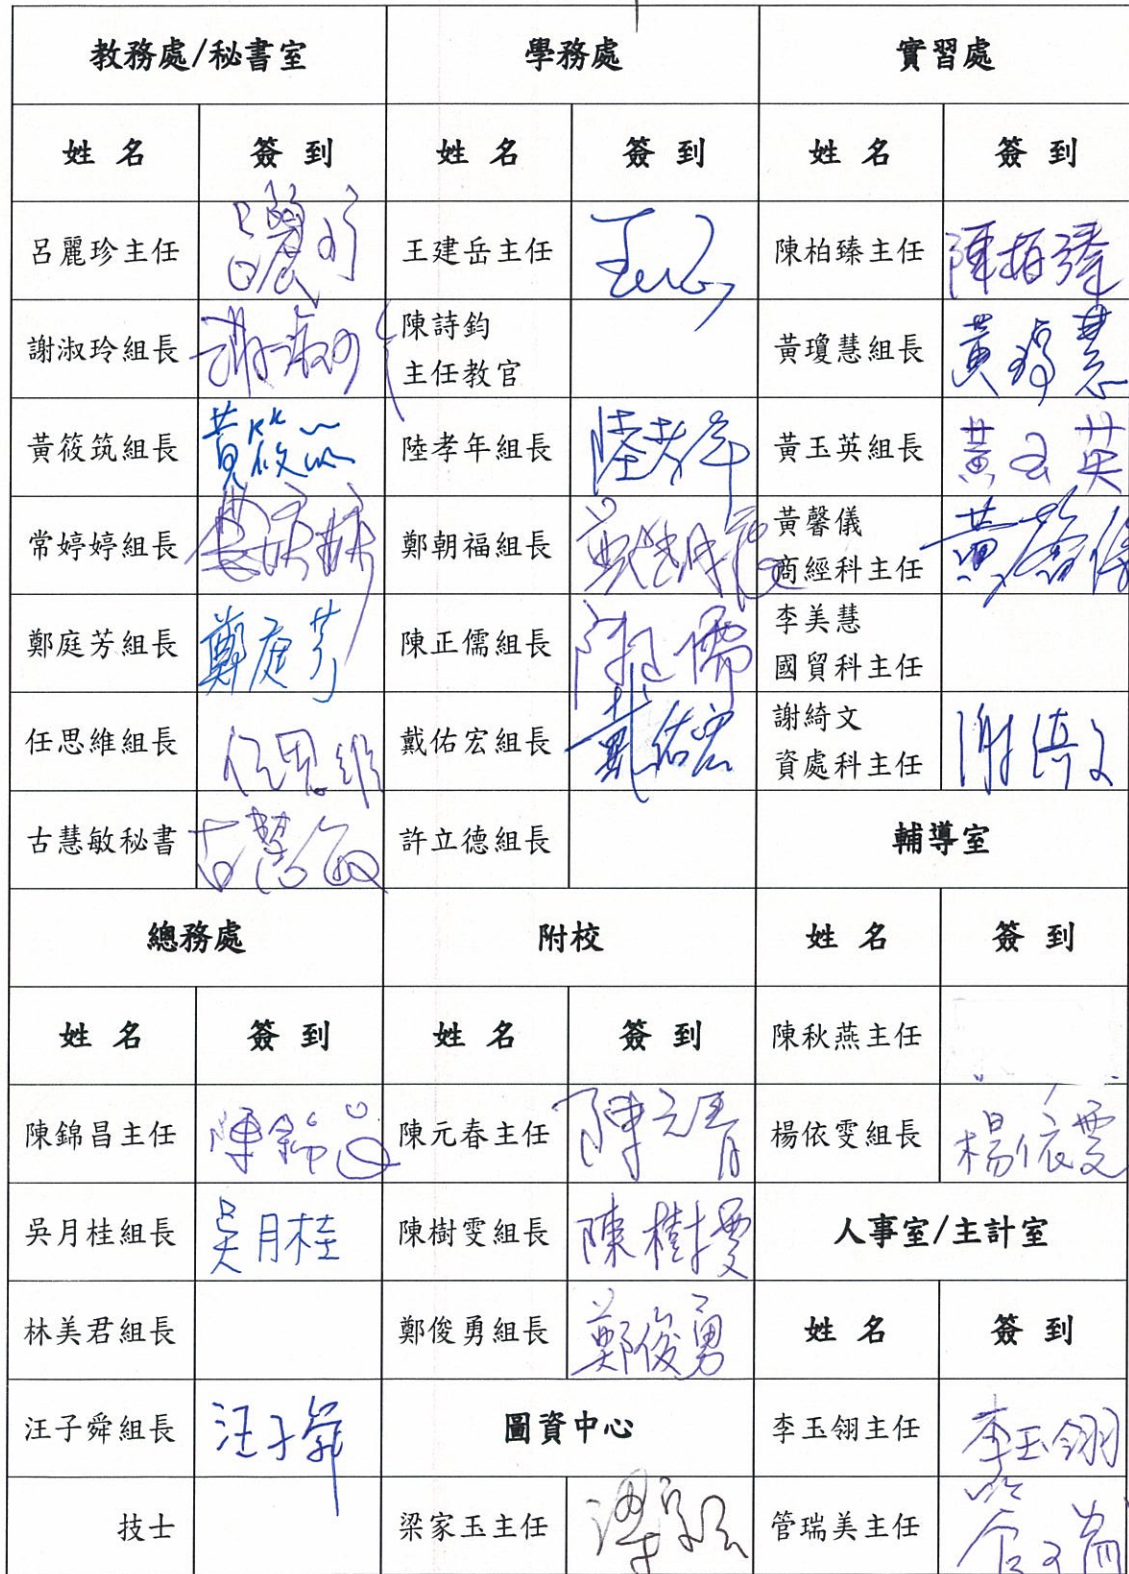 教務處/秘書室 學務處 實習處
姓名 簽到 姓名 簽到 姓名 簽到
呂麗珍主任 呂麗珍 王建岳主任 陳柏臻主任 陳柏臻
謝淑玲組長 陳詩鈞 主任教官 黃瓊慧組長 黃瓊慧
黃筱筑組長 黃筱筑 陸孝年組長 陸孝年 黃玉英組長 黃玉英
常婷婷組長 常婷婷 鄭朝福組長 鄭朝福 黃馨儀 商經科主任 黃馨儀
鄭庭芳組長 鄭庭芳 陳正儒組長 陳正儒 李美慧 國貿科主任
任思維組長 任思維 戴佑宏組長 戴佑宏 謝綺文 資處科主任 謝綺文
古慧敏秘書 古慧敏 許立德組長 輔導室
總務處 附校 姓名 簽到
姓名 簽到 姓名 簽到 陳秋燕主任
陳錦昌主任 陳錦昌 陳元春主任 陳元春 楊依雯組長 楊依雯
吳月桂組長 吳月桂 陳樹雯組長 陳樹雯 人事室/主計室
林美君組長 鄭俊勇組長 鄭俊勇 姓名 簽到
汪子舜組長 汪子舜 圖資中心 李玉翎主任 李玉翎
技士 梁家玉主任 管瑞美主任